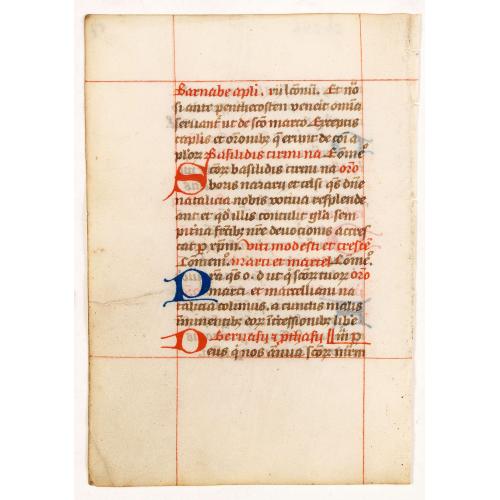 Barnabe apli. viii lcōnū. Et nō
si ante penthecosten venerit omīa
seruant᷑ ut de scō marco. Exceptis
caplis et oronibꝫ q̄ erunt de cōī a
plor̄ Basilidis cirini na Cōmē
Scōrꝫ basilidis cirini na oro
boris nazarii et celsi qs dn̄e
natalicia nobis votiua resplende
ant et qd̄ illis contulit glā sem
piterna fructibꝫ nr̄e deuotionis accres
cat p xpm̄. Viti modesti et cresce
Cōmem̄. Marci et marcel. Cōmē.
Pr̄a qs o. d ut q̄ scōr̄ tuoꝝ oro
marci et marcelliani na
talicia colimus, a cunctis malis
īminentibꝫ eoꝝ ītercessionibꝫ libe
Geruasii ⁊ ꝓthasii
Deus q̄ nos ānua scōrꝫ